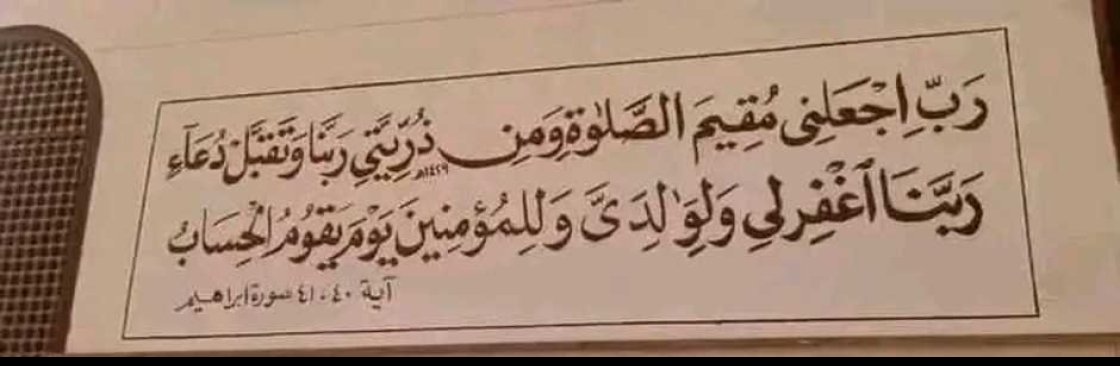 رَبِّ اجْعَلْنِى مُقِيمَ الصَّلَوٰةِ وَمِن ذُرِّيَّتِي رَبَّنَا وَتَقَبَّلْ دُعَآءِ
١٤٢٩هـ
رَبَّنَا ٱغْفِرْ لِي وَلِوَٰلِدَىَّ وَلِلْمُؤْمِنِينَ يَوْمَ يَقُومُ الْحِسَابُ
آية ٤٠، ٤١ سورة ابراهيم